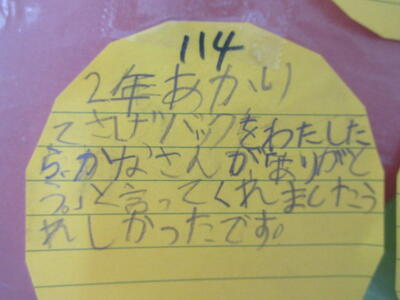 114
2年あかり
てさげバックをわたした
ら、かなさんが「ありがと
う。」と言ってくれましたう
れしかったです。